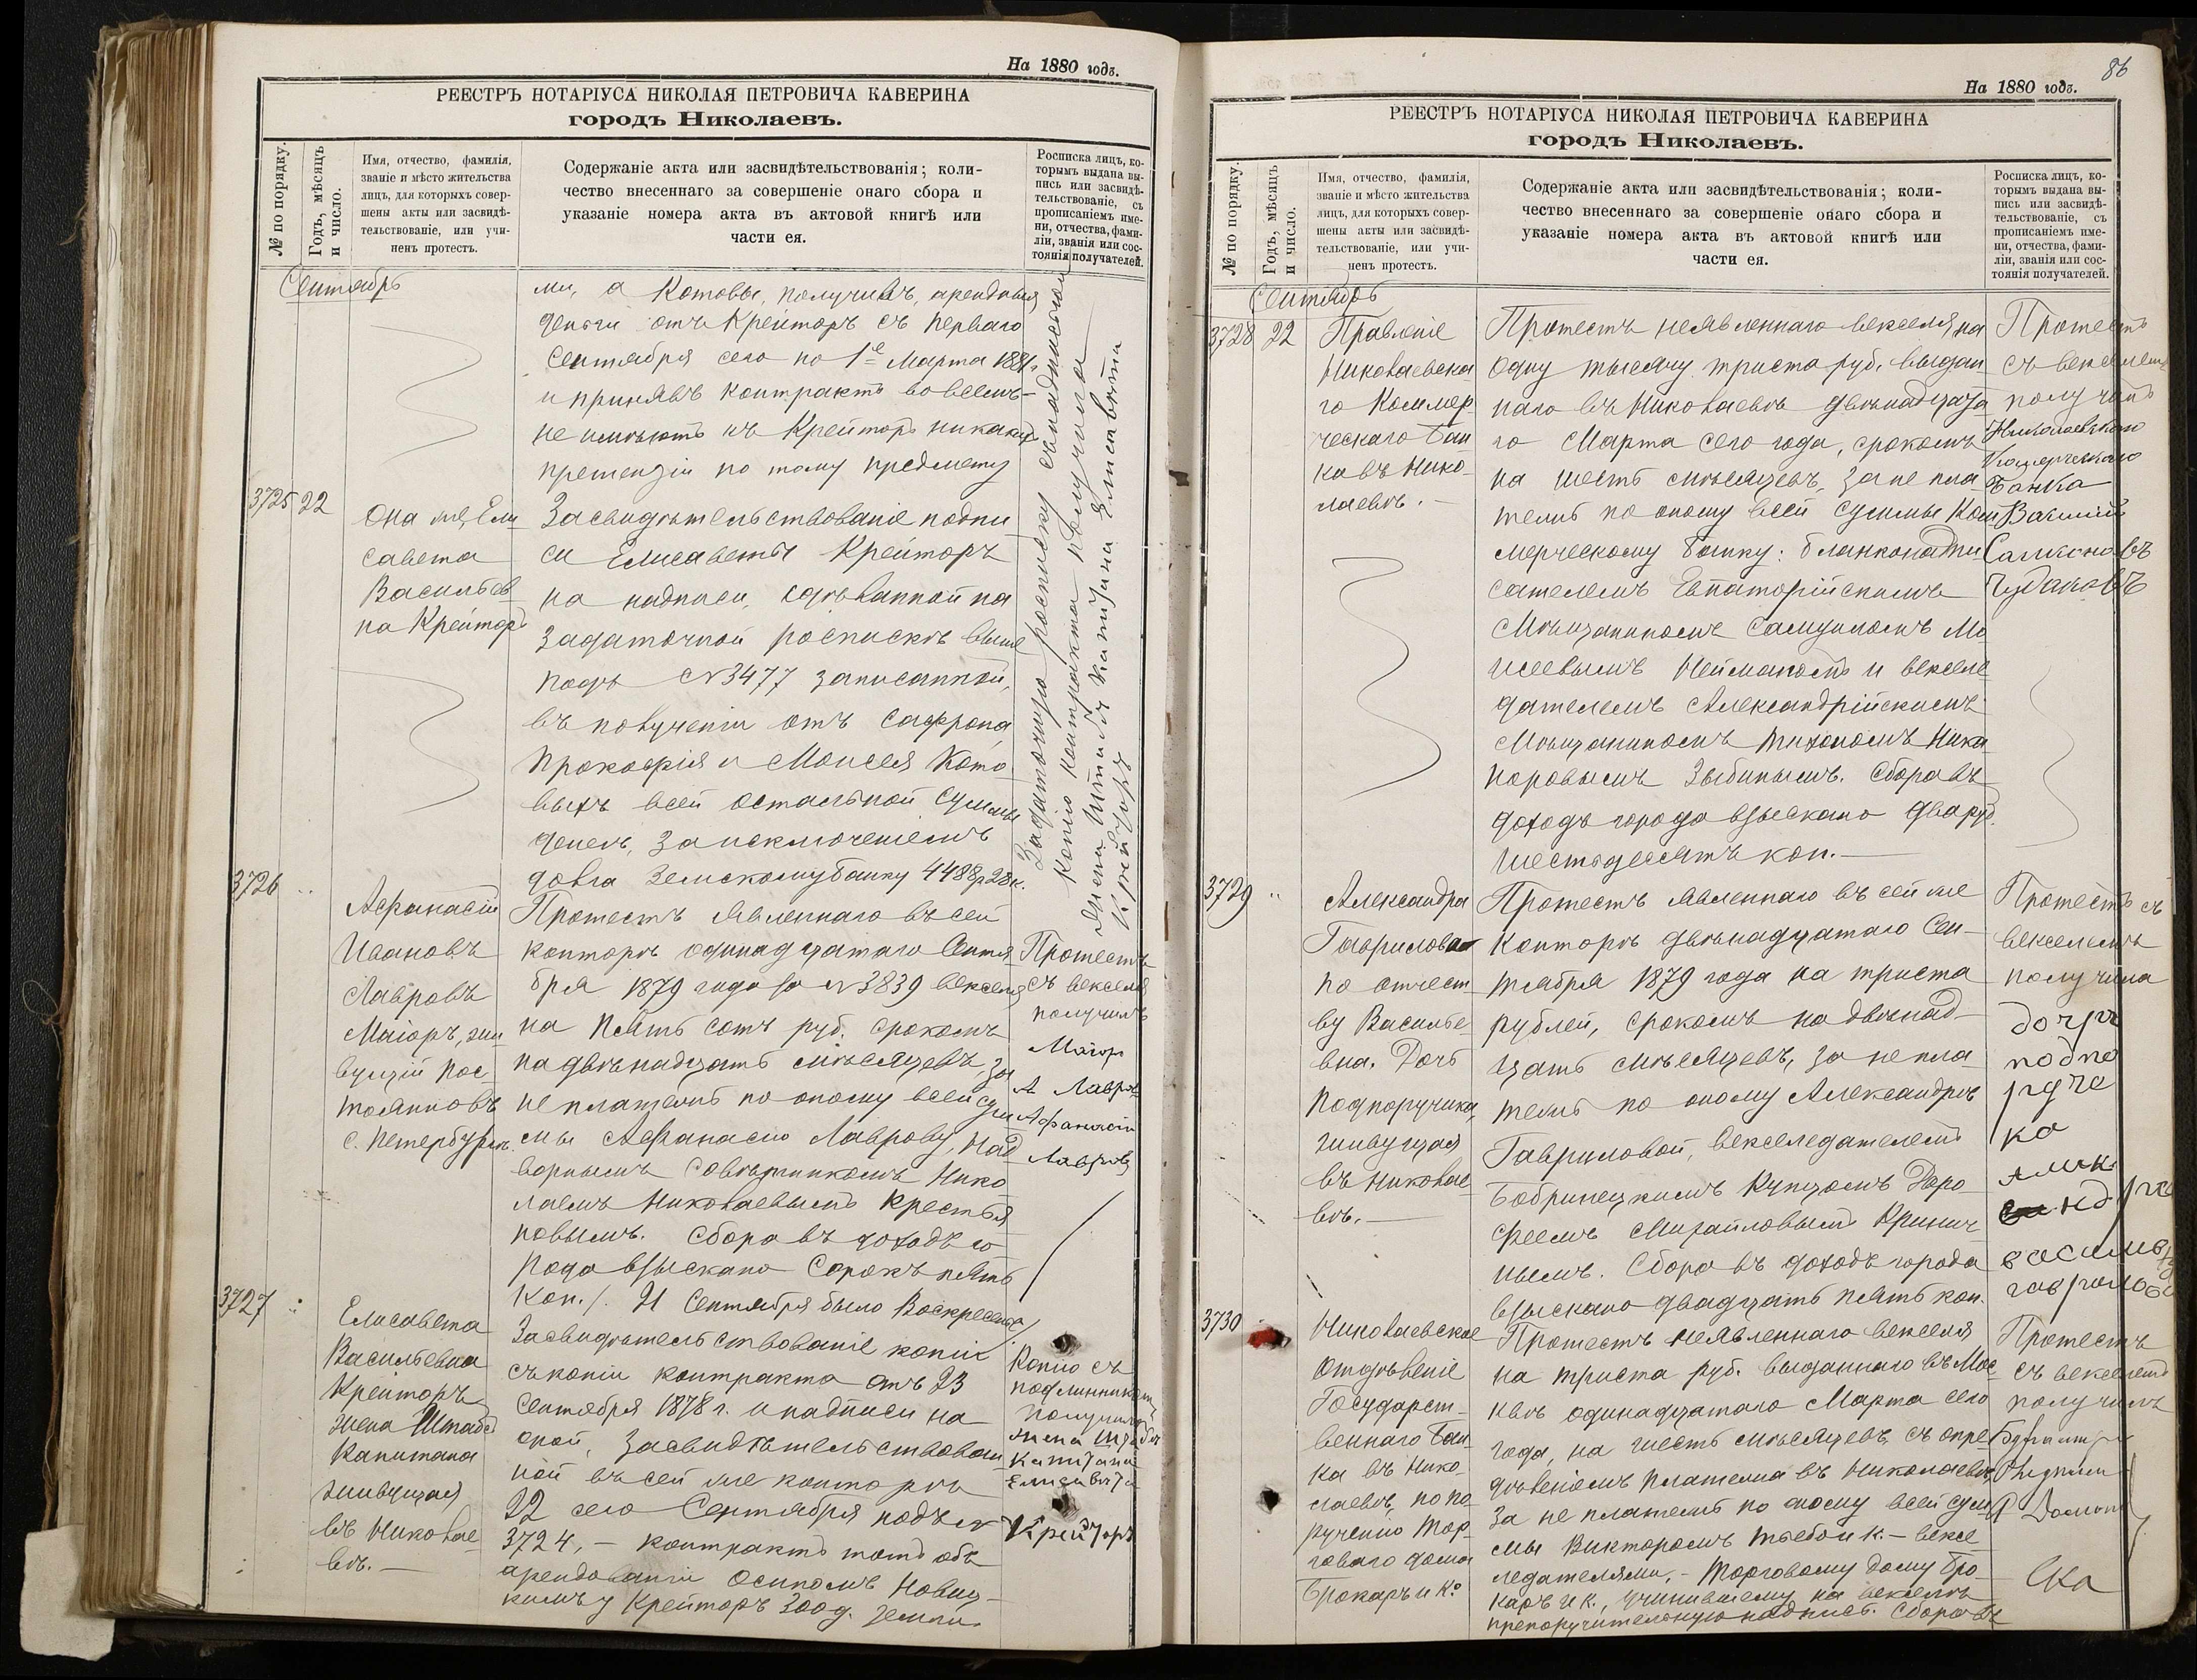 На 1880 годъ.
РЕЕСТРЪ НОТАРІУСА НИКОЛАЯ ПЕТРОВИЧА КАВЕРИНА
городъ Николаевъ.
№ по порядку.
Годъ, мѣсяцъ
и число.
Имя, отчество, фамилія,
званіе и мѣсто жительства
лицъ, для которыхъ совер-
шены акты или засвидѣ-
тельствованіе, или учи-
ненъ протестъ.
Содержаніе акта или засвидѣтельствованія; коли-
чество внесеннаго за совершеніе онаго сбора и
указаніе номера акта въ актовой книгѣ или
части ея.
Росписка лицъ, ко-
торымъ выдана вы-
пись или засвидѣ-
тельствованіе, съ
прописаніемъ име-
ни, отчества, фами-
ліи, званія или сос-
тоянія получателей.
Сентябрь
ми, а Котовы, получивъ, арендныя
деньги отъ Крейторъ съ перваго
Сентября сего по 1е Марта 1881 г.
и принявъ контрактъ во всемъ-
не имѣютъ къ Крейторъ никакихъ
претензій по тому предмету
3725 22
Она же, Ели
савета
Васильев
на Крейторъ
Засвидѣтельствованіе подпи
си Елисаветы Крейторъ
на надписи, сдѣланной на
задаточной роспискѣ выше
подъ № 3477 записанной,
въ полученіи отъ Сафрона,
Прокофія и Моисея Кото
выхъ всей остальной суммы
денегъ, за исключеніемъ
долга Земскому банку 4488 р 28 к.
Задаточную росписку съ надписью и
копію контракта получила
жена Штабсъ Капитана Елисавета
Крейторъ
3726 "
Афанасій
Ивановъ
Лавровъ
Маіоръ, жи
вущій пос-
тоянно въ
С. Петербургѣ.
Протестъ явленнаго въ сей
конторѣ одинадцатаго Сентя
бря 1879 года за № 3839 векселя
на пять сотъ руб. срокомъ
на двѣнадцать мѣсяцевъ, за
не платежъ по оному всей сум
мы Афанасію Лаврову, Над
ворнымъ Совѣтникомъ Нико
лаемъ Николаевымъ Крестья
новымъ. Сбора въ доходъ го
рода взыскано Сорокъ пять
коп. /. 21 Сентября было Воскресенье /
Протестъ
съ векселя
получилъ
Маіоръ
А Лавровъ
Афанасій
Лавровъ
3727 "
Елисавета
Васильевна
Крейторъ
жена Штабсъ
Капитана
живущая
въ Николае-
вѣ.
Засвидѣтельствованіе копіи
съ копіи контракта отъ 23
Сентября 1878 г. и надписи на
оной, засвидѣтельствован
ной въ сей же конторѣ
22 сего Сентября подъ №
3724, - контрактъ тотъ объ
арендованіи Осипомъ Новиц-
кимъ у Крейторъ 300 д. земли.
Копію съ
подлинникомъ
получила
жена Штабсъ
Капитана
Елисавета
Крейторъ
86
На 1880 годъ.
РЕЕСТРЪ НОТАРІУСА НИКОЛАЯ ПЕТРОВИЧА КАВЕРИНА
городъ Николаевъ.
№ по порядку.
Годъ, мѣсяцъ
и число.
Имя, отчество, фамилія,
званіе и мѣсто жительства
лицъ, для которыхъ совер-
шены акты или засвидѣ-
тельствованіе, или учи-
ненъ протестъ.
Содержаніе акта или засвидѣтельствованія; коли-
чество внесеннаго за совершеніе онаго сбора и
указаніе номера акта въ актовой книгѣ или
части ея.
Росписка лицъ, ко-
торымъ выдана вы-
пись или засвидѣ-
тельствованіе, съ
прописаніемъ име-
ни, отчества, фами-
ліи, званія или сос-
тоянія получателей.
Сентябрь
3728 22
Правленіе
Николаевска
го Коммер
ческаго Бан
ка въ Нико-
лаевѣ. -
Протестъ неявленнаго векселя, на
одну тысячу триста руб. выдан
наго въ Николаевѣ двѣнадцата
го Марта сего года, срокомъ
на шесть мѣсяцевъ, за не пла
тежъ по оному всей суммы Ком
мерческому банку: бланконадпи
сателемъ Евпаторійскимъ
Мѣщаниномъ Самуиломъ Мо
исеевымъ Нейманомъ и вексле
дателемъ Александрійскимъ
Мѣщаниномъ Тихономъ Ника
норовымъ Зыбинымъ. Сбора въ
доходъ города взыскано два руб.
шестьдесятъ коп.
Протестъ
съ векселемъ
получилъ
Николаевскаго
Комерческаго
Банка
Василій
Самсоновъ
Чудаковъ
3729 "
Александра
Гаврилова
по отчест
ву Василье-
вна. Дочь
подпоручика,
живущая
въ Николае-
вѣ.
Протестъ явленнаго въ сей же
конторѣ двѣнадцатаго Сен-
тября 1879 года на триста
рублей, срокомъ на двѣнад-
цать мѣсяцевъ, за не пла
тежъ по оному Александрѣ
Гавриловой, векселедателемъ
Бобринецкимъ Купцомъ Доро
феемъ Михайловымъ Кринич
нымъ. Сбора въ доходъ города
взыскано двадцать пять коп.
Протестъ съ
векселемъ
получила
дочрь
подпо
руче
ка
3730
Николаевское
Отдѣленіе
Государст-
веннаго Бан-
ка въ Нико-
лаевѣ, по по
рученію Тор-
говаго дома
Брокаръ и Ко
Протестъ неявленнаго векселя
на триста руб. выданнаго въ Мос-
квѣ одинадцатаго Марта сего
года, на шесть мѣсяцевъ, съ опре
дѣленіемъ платежа въ Николаевѣ
за не платежъ по оному всей сум
мы Викторомъ Тьебо и К. - вексе
ледателями, - Торговому дому Бро
каръ и К., учинившему на векселѣ
препоручительную надпись. Сбора въ
Протестъ
съ векселемъ
получилъ